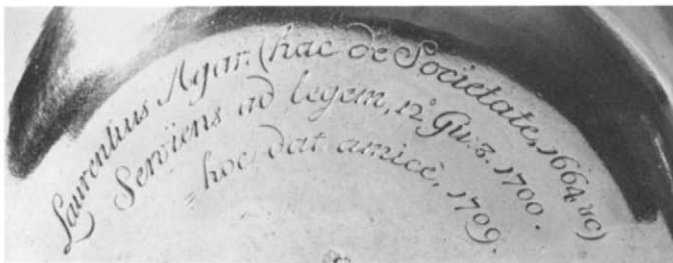 Laurentius Agar: (hac de Societate, 1664 &c)
Serviens ad legem, 12º Gu: 3. 1700.
hoc dat amicè, 1709.